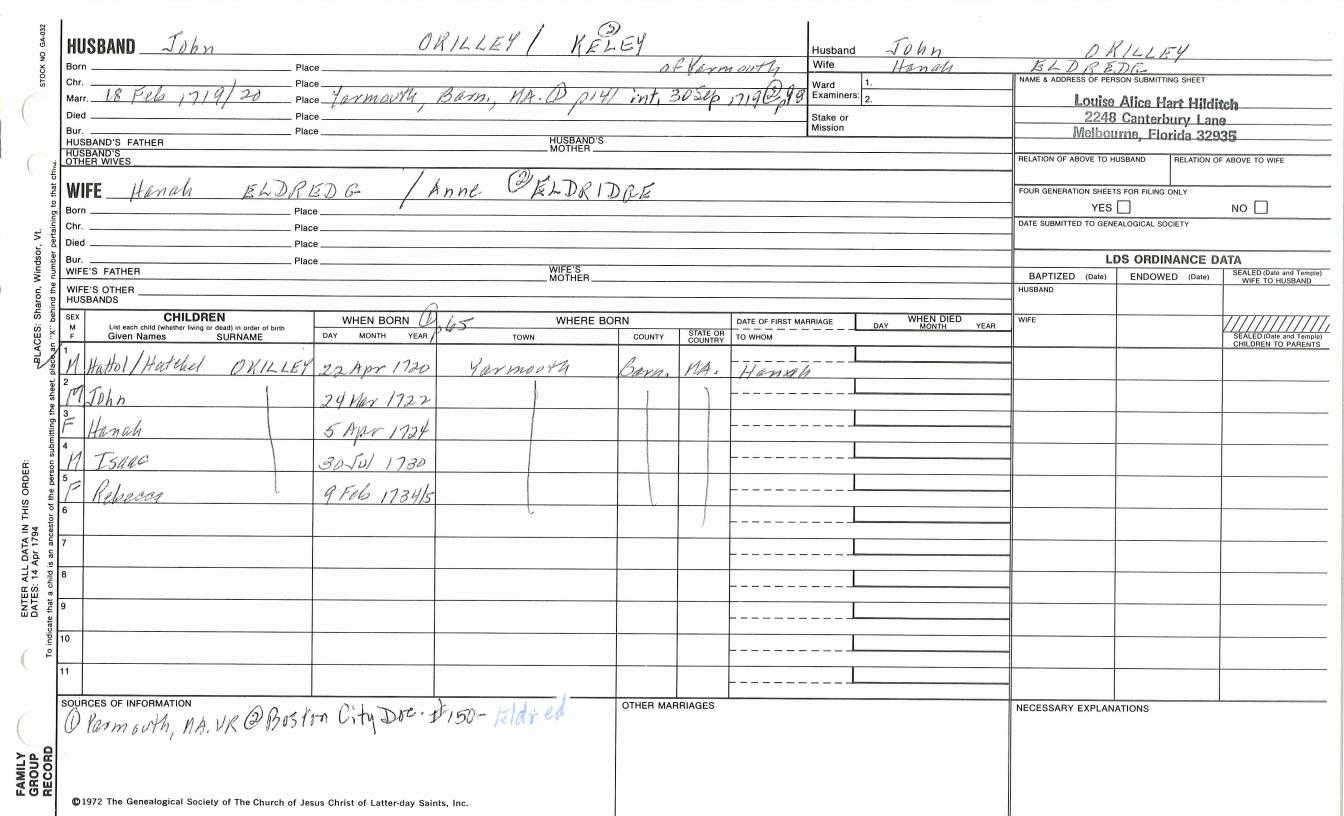 STOCK NO GA-032
HUSBAND John OKILLEY / ② KELEY
Born Place of Yarmouth
Chr. Place
Marr. 18 Feb 1719/20 Place Yarmouth, Barn., MA. ① p141 int. 30 Sep 1719 ② p98
Died Place
Bur. Place
HUSBAND'S FATHER HUSBAND'S MOTHER
HUSBAND'S OTHER WIVES
WIFE Hanah ELDREDG / Anne ② ELDRIDRE
Born Place
Chr. Place
Died Place
Bur. Place
WIFE'S FATHER WIFE'S MOTHER
WIFE'S OTHER HUSBANDS
Husband John OKILLEY
Wife Hanah ELDREDG
Ward Examiners: 1.
2.
Stake or Mission
NAME & ADDRESS OF PERSON SUBMITTING SHEET
Louise Alice Hart Hilditch
2248 Canterbury Lane
Melbourne, Florida 32935
RELATION OF ABOVE TO HUSBAND RELATION OF ABOVE TO WIFE
FOUR GENERATION SHEETS FOR FILING ONLY
YES NO
DATE SUBMITTED TO GENEALOGICAL SOCIETY
LDS ORDINANCE DATA
BAPTIZED (Date) ENDOWED (Date) SEALED (Date and Temple) WIFE TO HUSBAND
HUSBAND
WIFE
SEALED (Date and Temple) CHILDREN TO PARENTS
SEX M F
CHILDREN
List each child (whether living or dead) in order of birth
Given Names SURNAME
WHEN BORN ① p65
DAY MONTH YEAR
WHERE BORN
TOWN COUNTY STATE OR COUNTRY
DATE OF FIRST MARRIAGE
TO WHOM
WHEN DIED
DAY MONTH YEAR
1 M Hattol/Hatchel OKILLEY 22 Apr 1720 Yarmouth Barn. MA. Hannah
2 M John 24 Mar 1722
3 F Hanah 5 Apr 1724
4 M Isaac 30 Jul 1730
5 F Rebecca 9 Feb 1734/5
6
7
8
9
10
11
SOURCES OF INFORMATION
① Yarmouth, MA. VR ② Boston City Doc. #150- Eldred
OTHER MARRIAGES
NECESSARY EXPLANATIONS
©1972 The Genealogical Society of The Church of Jesus Christ of Latter-day Saints, Inc.
FAMILY GROUP RECORD
ENTER ALL DATA IN THIS ORDER:
DATES: 14 Apr 1794
PLACES: Sharon, Windsor, Vt.
To indicate that a child is an ancestor of the person submitting the sheet, place an "X" behind the number pertaining to that child.